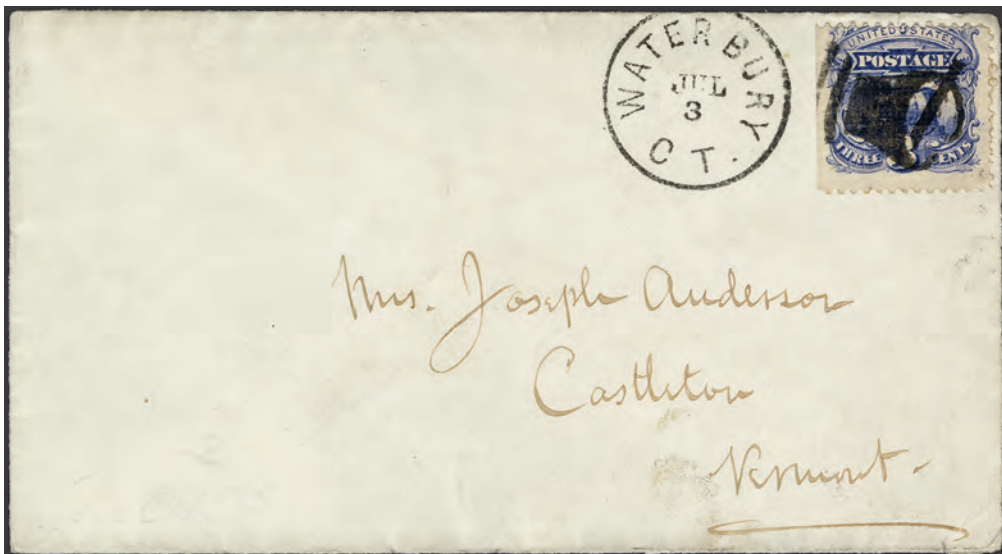 WATERBURY
JUL
3
CT.
UNITED STATES
POSTAGE
THREE 3 CENTS
Mrs. Joseph Anderson
Castleton
Vermont.